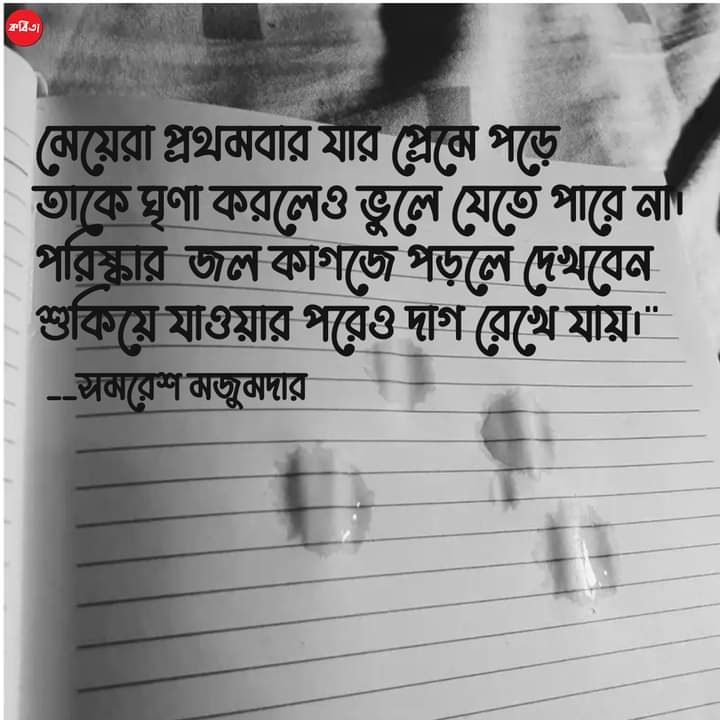 কবিতা
মেয়েরা প্রথমবার যার প্রেমে পড়ে
তাকে ঘৃণা করলেও ভুলে যেতে পারে না।
পরিষ্কার জল কাগজে পড়লে দেখবেন
শুকিয়ে যাওয়ার পরেও দাগ রেখে যায়।"
__সমরেশ মজুমদার